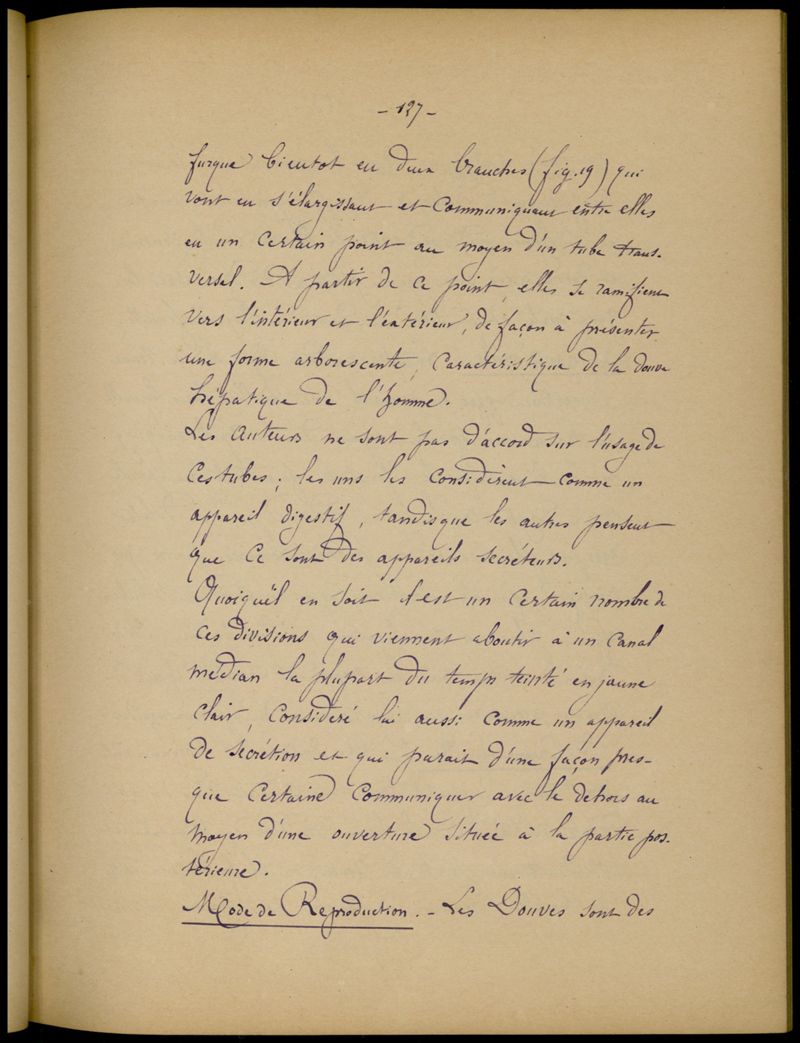 - 127 -
furque bientot en deux branches (fig. 19) qui
vont en s'élargissant et communiquent entre elles
en un certain point au moyen d'un tube trans-
versal. A partir de ce point, elles se ramifient
vers l'intérieur et l'extérieur, de façon à présenter
une forme arborescente, caractéristique de la douve
hépatique de l'homme.
Les auteurs ne sont pas d'accord sur l'usage de
ces tubes ; les uns les considèrent comme un
appareil digestif, tandis que les autres pensent
que ce sont des appareils secréteurs.
Quoiqu'il en soit il est un certain nombre de
ces divisions qui viennent aboutir à un canal
médian la plupart du temps teinté en jaune
clair, considéré lui aussi comme un appareil
de sécrétion et qui parait d'une façon pres-
que certaine communiquer avec le dehors au
moyen d'une ouverture située à la partie pos-
térieure.
Mode de Reproduction. - Les Douves sont des